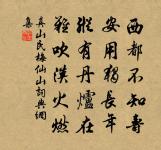 西都不知壽
安用獨長年
縱有丹爐在
難吹漢火燃
真山民梅仙山詞典網
集